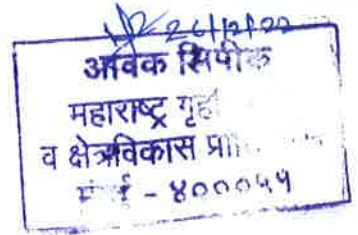 26/12/22
आवक लिपीक
महाराष्ट्र गृह
व क्षेत्रविकास प्रा
मुंबई - ४०००५१